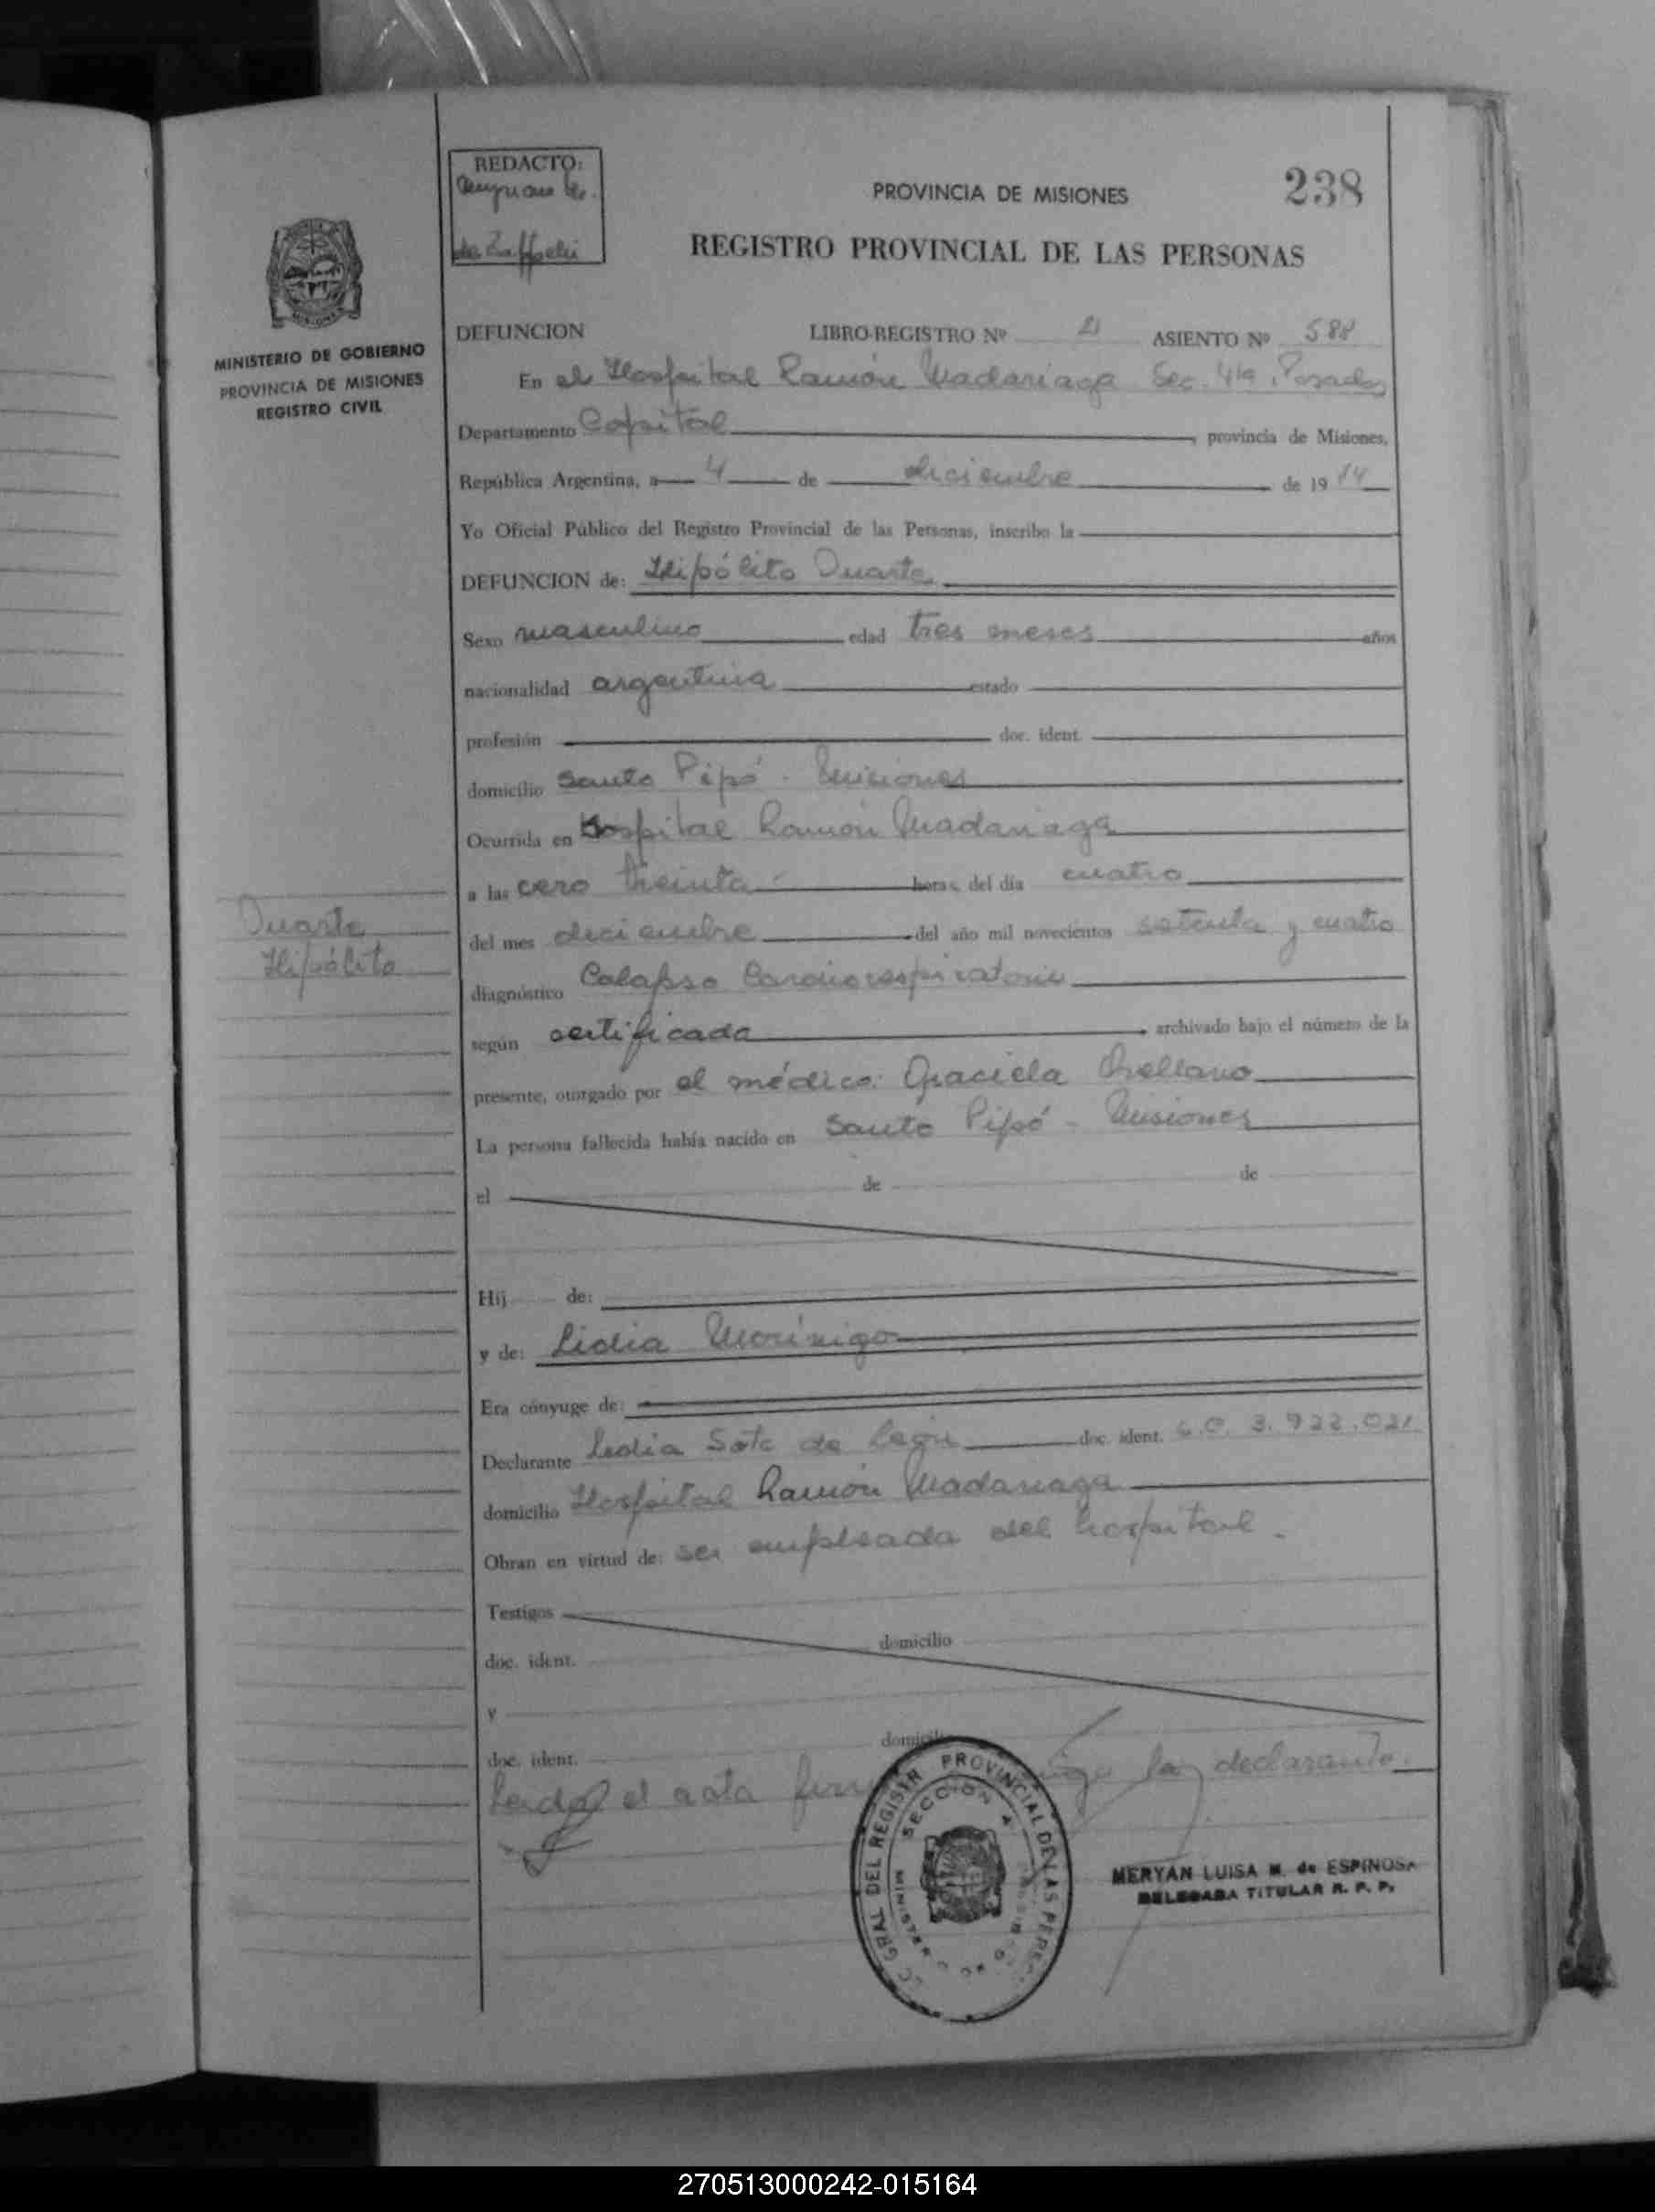 REDACTO:
de Zaffoeli
PROVINCIA DE MISIONES
238
REGISTRO PROVINCIAL DE LAS PERSONAS
MINISTERIO DE GOBIERNO
PROVINCIA DE MISIONES
REGISTRO CIVIL
DEFUNCION LIBRO-REGISTRO Nº ASIENTO Nº 588
En el Hospital Ramón Madariaga Sec. 4ta, Posadas
Departamento Capital, provincia de Misiones,
República Argentina, a 4 de diciembre de 19
Yo Oficial Público del Registro Provincial de las Personas, inscribo la
DEFUNCION de: Hipólito Duarte
Sexo masculino edad tres meses años
nacionalidad argentina estado
profesión doc. ident.
domicilio Santo Pipó - Misiones
Ocurrida en Hospital Ramón Madariaga
a las cero treinta horas del día cuatro
Duarte
Hipólito
del mes diciembre del año mil novecientos setenta y cuatro
diagnóstico Colapso Cardiorespiratorio
según certificado archivado bajo el número de la
presente, otorgado por el médico: Graciela Orellano
La persona fallecida había nacido en Santo Pipó - Misiones
el de de
Hij de:
y de: Lidia Morínigo
Era cónyuge de:
Declarante Lidia Soto de León doc. ident. L.C. 3.922.021
domicilio Hospital Ramón Madariaga
Obran en virtud de: ser empleada del hospital.
Testigos
domicilio
doc. ident.
y
domicilio
doc. ident.
Leída el acta la declarante.
GRAL DEL REGISTR PROVINCIAL DE LAS PERS
SECCION 4
MERYAN LUISA M. de ESPINOSA
DELEGADA TITULAR R. P. P.
270513000242-015164